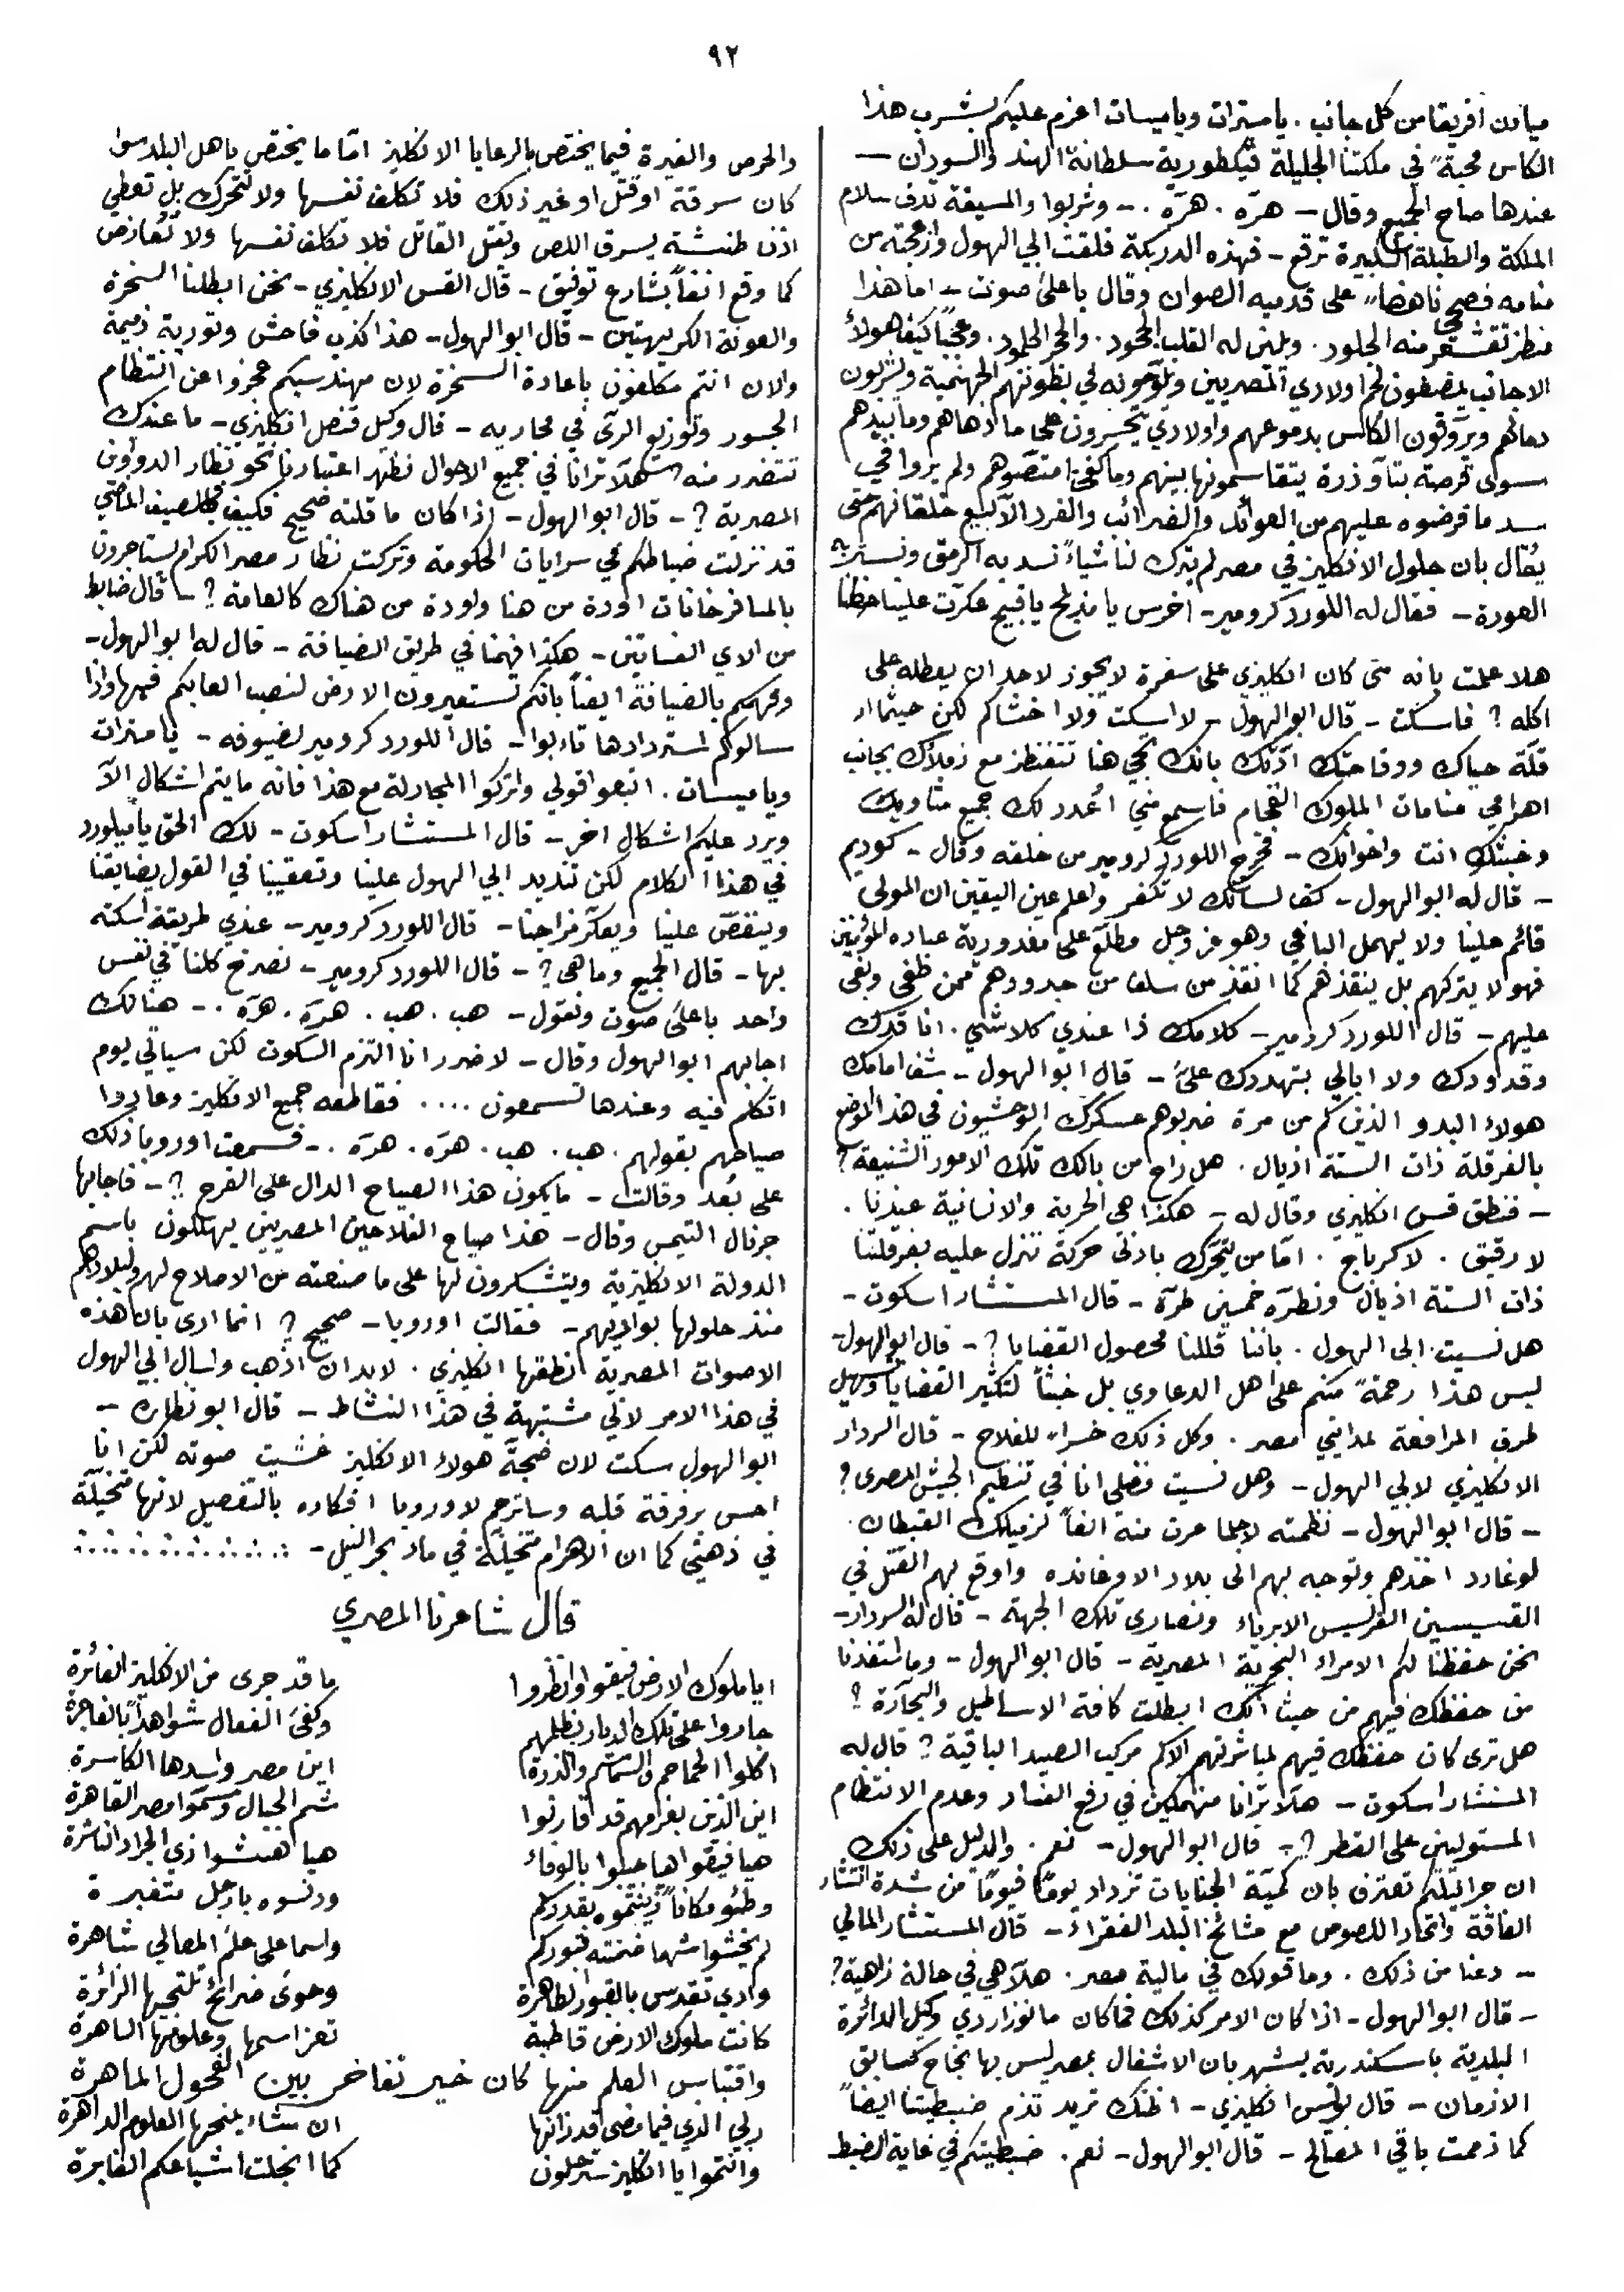 ٩٢
ميادن افريقا من كل جانب . يا مسترات ويا ميسات اعزم عليكم بشرب هذا
الكاس محبةً في ملكتنا الجليلة فيكطورية سلطانة الهند والسودان —
عندها صاح الجميع وقال – هرّه . هرّه . – وشربوا والمسيقة تدق سلام
الملكة والطبلة الكبيرة ترقع – فهذه الدربكة قلقت ابي الهول وازعجته من
منامه فصحي ناهضاً على قدميه الصوان وقال باعلى صوت – اما هذا
منظر تقشعر منه الجلود . ويلين له القلب الجحود . والحجر الجلمود . وعجباً كيف هولاء
الاجانب يمضغون لحم اولادي المصريين ويلوّحونه في بطونهم الجهنمية ويشربون
دمائهم ويروّقون الكاس بدموعهم واولادي يتحسرون على ما دهاهم وما بيدهم
سوى قرصة بتاو ذرة يتقاسمونها بينهم وما كفى امتصّوهم ولم يروا في
سد ما فرضوه عليهم من العوائد والضرائب والفرد الا لبيع خلقانهم حتى
يُقال بان حلول الانكليز في مصر لم يترك لنا شياءً نسد به الرمق ونستر به
العورة – فقال له اللورد كرومير – اخرس يا قبيح عكرّت علينا حظنا
هلا علمت بانه متى كان انكليزي على سفرة لا يجوز لاحد ان يعطله على
اكله ? فاسكت – قال ابو الهول – لا اسكت ولا اخشاكم لكن حيثما ان
قلّة حياك ووقاحتك ادّتك بانك تجي هنا تتفنظز مع زملاؤك بجانب
اهرامي منامات الملوك الفخام فاسمع مني اُعدد لك جميع مثاويك
وخبثك انت واخوانك – فخرج اللورد كرومير من خلقه وقال – كوديم
– قال له ابو الهول – كف لسانك لا تكفر واعلم عين اليقين ان المولى
قائم علينا ولا يهمل الباغي وهو عز وجل مطلع على مقدورية عباده المؤمنين
فهو لا يتركهم بل ينقذهم كما انقذ من سلف من جدودهم ممن طغى وبغى
عليهم – قال اللورد كرومير – كلامك ذا عندي كلاشي . انا قدك
وقدودك ولا ابالي بتهددك عليّ – قال ابو الهول – شف امامك
هولاء البدو الذين كم من مرة ضربوهم عسكرك الوحشيون في هذا الموضع
بالفرقلة ذات الستة اذيال . هل راح من بالك تلك الامور الشنيعة ?
– فنطق قس انكليزي وقال له – هكذا هي الحرية والانسانية عندنا .
لا رقيق . لا كرباج . امّا من يتحرّك بادنى حركة تنزل عليه بفرقلتنا
ذات الستة اذيال ونطرّه خمسين طرّة – قال المستشار اسكوت –
هل نسيت ابى الهول . باننا قللنا محصول القضايا ? – قال ابو الهول –
ليس هذا رحمةً منكم على اهل الدعاوي بل خبثاً لتكثير القضايا وتسهيل
طرق المرافعة لمداينيي مصر . وكل ذلك خسارء للفلاح – قال السردار
الانكليزي لابي الهول – وهل نسيت فضلي انا في تنظيم الجيش المصرى ?
– قال ابو الهول – نظمته لاجل ما عرت منه انفاً لزميلك القبطان
لوغارد اخذهم وتوجه بهم الى بلاد الاوغانده واوقع بهم القتل في
القسيسين الفرنسيس الابرياء ونصارى تلك الجهة – قال له السردار –
نحن حفظنا لكم الامراء البحرية المصرية – قال ابو الهول – وما استفدنا
من حفظك فيهم من حيث انك ابطلت كافة الاساطيل والبحّارة ?
هل ترى كان حفظك فيهم لمباشرتهم الاكم مركب الصيد الباقية ? قال له
المستشار اسكوت – هلا ترانا منهمكين في رفع الفساد وعدم الانتظام
المستوليين على القطر ? – قال ابو الهول – نعم . والدليل على ذلك
ان جرائيلكم تعترف بان كميّة الجنايات تزداد يومًا فيومًا من شدة انتشار
الفاقة واتحاد اللصوص مع مشائخ البلد الفقراء – قال المستشار المالي
– دعنا من ذلك . وما قولك في مالية مصر . هلّا هي في حالة زاهية ?
– قال ابو الهول – اذا كان الامر كذلك فما كان مانوزاردي وكيل الدائرة
البلدية باسكندرية يشهر بان الاشغال بمصر ليس بها نجاح كسابق
الازمان – قال بوليس انكليزي – اظنك تريد تذم ضبطيتنا ايضاً
كما ذممت باقي المصالح – قال ابو الهول – نعم . ضبطيتكم في غاية الضبط
والحرص والغيرة فيما يختص بالرعايا الانكليز امّا ما يختص باهل البلد سوا
كان سرقة او قتل او غير ذلك فلا تكلف نفسها ولا تتحرك بل تعطي
اذن طنشة يسرق اللص ويقتل القاتل فلا تكلف نفسها ولا تُعارض
كما وقع انفاً بشارع توفيق – قال القس الانكليزي – نحن ابطلنا السخرة
والعونة الكريهتين – قال ابو الهول – هذا كذب فاحش وتورية ذميمة
والان انتم مكلفون باعادة السخرة لان مهندسيكم عجزوا عن انتظام
الجسور وتوزيع الرّى في مجاريه – قال وكيل قنصل انكليزي – ما عندك
تتضرر منه هلّا ترانا في جميع الاحوال نظهر اعتبارنا نحو نظار الدواوين
المصرية ? – قال ابو الهول – اذا كان ما قلته صحيح فكيف بالصيف الماضي
قد نزلت ضباطكم في سرايات الحكومة وتركت نظار مصر الكرام يستاجرون
بالمسافرخانات اودة من هنا واودة من هناك كالعامة ? – قال ضابط
من الاي الفساتين – هكذا فهمنا في طريق الضيافة – قال له ابو الهول –
وفهمكم بالضيافة ايضاً بانكم تستعيرون الارض لنصب العابكم فيها واذا
سالوكم لاستردادها تابوا – قال اللورد كرومير لضيوفه – يا مسترات
ويا ميسات . اتبعوا قولي واتركوا المجادلة مع هذا فانه ما يتم اشكال الاّ
ويرد عليكم اشكال اخر – قال المستشار اسكوت – لك الحق يا ميلورد
في هذا الكلام لكن تنديد ابي الهول علينا وتعقيبنا في القول يضايقنا
وينغصّ علينا ويعكّر مزاجنا – قال اللورد كرومير – عندي طريقة اسكته
بها – قال الجميع وما هى ? – قال اللورد كرومير – نصرخ كلنا في نفس
واحد باعلى صوت ونقول – هب . هب . هرّه . هرّه . – هنالك
اجابهم ابو الهول وقال – لا ضرر انا التزم السكوت لكن سيالي يوم
اتكلم فيه وعندها تسمعون .... فقاطعه جميع الانكليز وعادوا
صياحهم بقولهم . هب . هب . هرّه . هرّه . – فسمعت اوروبا ذلك
على بُعد وقالت – ما يكون هذا الصياح الدال على الفرح ? – فاجابها
جرنال التيمس وقال – هذا صياح الفلاحين المصريين يهللون باسم
الدولة الانكليزية ويتشكرون لها على ما صنعته من الاصلاح لهم ولبلادهم
منذ حلولها بواديهم – فقالت اوروبا – صحيح ? انما ارى بان هذه
الاصوات المصرية انطقها انكليزي . لابد ان اذهب واسال ابي الهول
في هذا الامر لاني مشتبهة في هذا النشاط – قال ابو نظاره –
ابو الهول سكت لان ضجّة هولاء الانكليز غشيت صوته لكن انا
احس برفرفة قلبه وساترجم لاوروبا افكاره بالتفصيل لانها متخيّلة
في ذهني كما ان الاهرام متخيّلة في ماء بحر النيل –
قال شاعرنا المصري
ايا ملوك الارض فيقوا وانظروا ما قد جرى من الانكليز الفائزة
جاروا على تلك الديار بظلمهم وكفى الفعال شواهداً بالفاجرة
اكلوا الجماجم والسماسم والذرة اين مصر واسدها الكاسرة
اين الذين بعزمهم قد قارنوا شم الجبال وسمّوا مصر القاهرة
هيا فيقوا هيا عيلوا بالوفاء هيا هشوا ذي الجراد الناشرة
وطئو مكاناً زينتموه بقدركم ودنسوه بارجل متغبرة
لم يخشوا شهما ضمنته قبوركم واسما على علم المعالي شاهرة
وادي تقدس بالقبور الطاهرة وحوى ضرائح تلتجيها الزائرة
كانت ملوك الارض قاطبة تعز اسمها وعلومها الساهرة
واقتباس العلم منها كان خير تفاخر بين الفحول الماهرة
ربي الذي فيما مضى قد زانها ان شاء يمنحها العلوم الداهرة
وانتموا يا انكليز سترحلون كما انجلت اشباعكم الغابرة